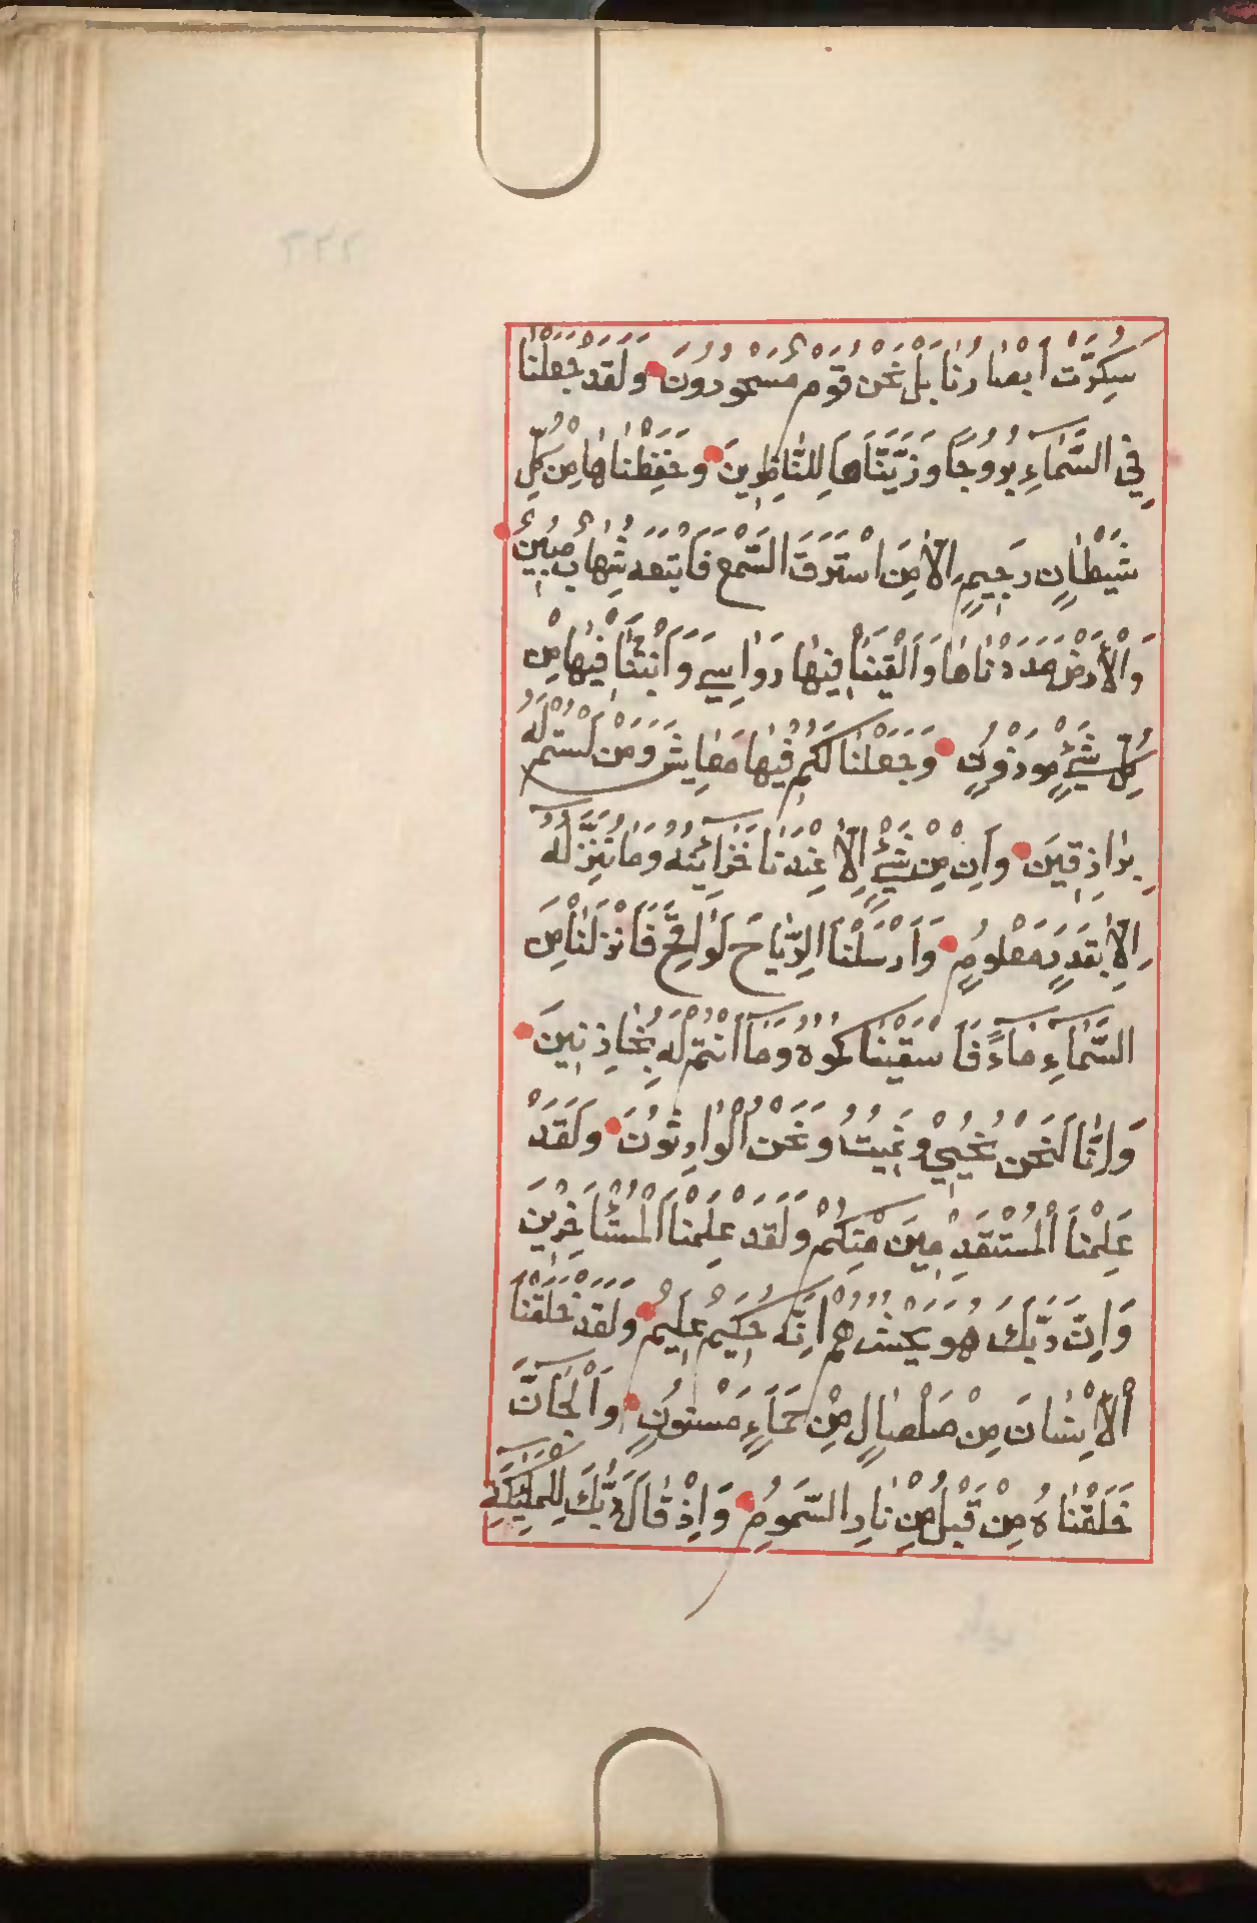 سُكِرَّتْ اَبْصَارُنَا بَلْ نَحْنُ قَوْمٌ مَسْحُورُونَ وَلَقَدْ جَعَلْنَا
فِي السَّمَاءِ بُرُوجًا وَزَيَّنَّاهَا لِلنَّاظِرِينَ وَحَفِظْنَاهَا مِنْ كُلِّ
شَيْطَانٍ رَجِيمٍ اِلَّا مَنِ اسْتَرَقَ السَّمْعَ فَاَتْبَعَهُ شِهَابٌ مُبِينٌ
وَالْأَرْضَ مَدَدْنَاهَا وَاَلْقَيْنَا فِيهَا رَوَاسِيَ وَاَنْبَتْنَا فِيهَا مِنْ
كُلِّ شَيْءٍ مَوْزُونٍ وَجَعَلْنَا لَكُمْ فِيهَا مَعَايِشَ وَمَنْ لَسْتُمْ لَهُ
بِرَازِقِينَ وَاِنْ مِنْ شَيْءٍ اِلَّا عِنْدَنَا خَزَائِنُهُ وَمَا نُنَزِّلُهُ
اِلَّا بِقَدَرٍ مَعْلُومٍ وَاَرْسَلْنَا الرِّيَاحَ لَوَاقِحَ فَاَنْزَلْنَا مِنَ
السَّمَاءِ مَاءً فَاَسْقَيْنَاكُمُوهُ وَمَا اَنْتُمْ لَهُ بِخَازِنِينَ
وَاِنَّا لَنَحْنُ نُحْيِي وَنُمِيتُ وَنَحْنُ الْوَارِثُونَ وَلَقَدْ
عَلِمْنَا الْمُسْتَقْدِمِينَ مِنْكُمْ وَلَقَدْ عَلِمْنَا الْمُسْتَأْخِرِينَ
وَاِنَّ رَبَّكَ هُوَ يَحْشُرُهُمْ اِنَّهُ حَكِيمٌ عَلِيمٌ وَلَقَدْ خَلَقْنَا
الْاِنْسَانَ مِنْ صَلْصَالٍ مِنْ حَمَاءٍ مَسْنُونٍ وَالْجَانَّ
خَلَقْنَاهُ مِنْ قَبْلُ مِنْ نَارِ السَّمُومِ وَاِذْ قَالَ رَبُّكَ لِلْمَلٰئِكَةِ